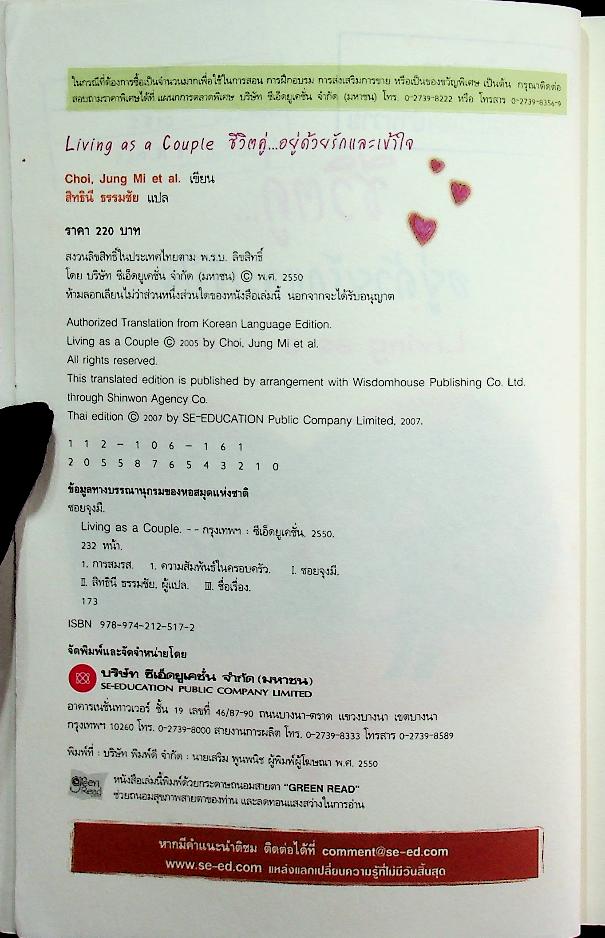 ในกรณีที่ต้องการซื้อเป็นจำนวนมากเพื่อใช้ในการสอน การฝึกอบรม การส่งเสริมการขาย หรือเป็นของขวัญพิเศษ เป็นต้น กรุณาติดต่อ
สอบถามราคาพิเศษได้ที่ แผนกการตลาดพิเศษ บริษัท ซีเอ็ดยูเคชั่น จำกัด (มหาชน) โทร. 0-2739-8222 หรือ โทรสาร 0-2739-8356-9
Living as a Couple ชีวิตคู่...อยู่ด้วยรักและเข้าใจ
Choi, Jung Mi et al. เขียน
สิทธินี ธรรมชัย แปล
ราคา 220 บาท
สงวนลิขสิทธิ์ในประเทศไทยตาม พ.ร.บ. ลิขสิทธิ์
โดย บริษัท ซีเอ็ดยูเคชั่น จำกัด (มหาชน) © พ.ศ. 2550
ห้ามลอกเลียนไม่ว่าส่วนหนึ่งส่วนใดของหนังสือเล่มนี้ นอกจากจะได้รับอนุญาต
Authorized Translation from Korean Language Edition.
Living as a Couple © 2005 by Choi, Jung Mi et al.
All rights reserved.
This translated edition is published by arrangement with Wisdomhouse Publishing Co. Ltd.
through Shinwon Agency Co.
Thai edition © 2007 by SE-EDUCATION Public Company Limited, 2007.
1 1 2 - 1 0 6 - 1 6 1
2 0 5 5 8 7 6 5 4 3 2 1 0
ข้อมูลทางบรรณานุกรมของหอสมุดแห่งชาติ
ซอยจุงมี.
Living as a Couple. -- กรุงเทพฯ : ซีเอ็ดยูเคชั่น, 2550.
232 หน้า.
1. การสมรส. 1. ความสัมพันธ์ในครอบครัว. I. ซอยจุงมี.
II. สิทธินี ธรรมชัย, ผู้แปล. III. ชื่อเรื่อง.
173
ISBN 978-974-212-517-2
จัดพิมพ์และจัดจำหน่ายโดย
บริษัท ซีเอ็ดยูเคชั่น จำกัด (มหาชน)
SE-EDUCATION PUBLIC COMPANY LIMITED
อาคารเนชั่นทาวเวอร์ ชั้น 19 เลขที่ 46/87-90 ถนนบางนา-ตราด แขวงบางนา เขตบางนา
กรุงเทพฯ 10260 โทร. 0-2739-8000 สายงานการผลิต โทร. 0-2739-8333 โทรสาร 0-2739-8589
พิมพ์ที่ : บริษัท พิมพ์ดี จำกัด : นายเสริม พูนพนิช ผู้พิมพ์ผู้โฆษณา พ.ศ. 2550
green Read
หนังสือเล่มนี้พิมพ์ด้วยกระดาษถนอมสายตา "GREEN READ"
ช่วยถนอมสุขภาพสายตาของท่าน และลดทอนแสงสว่างในการอ่าน
หากมีคำแนะนำติชม ติดต่อได้ที่ comment@se-ed.com
www.se-ed.com แหล่งแลกเปลี่ยนความรู้ที่ไม่มีวันสิ้นสุด